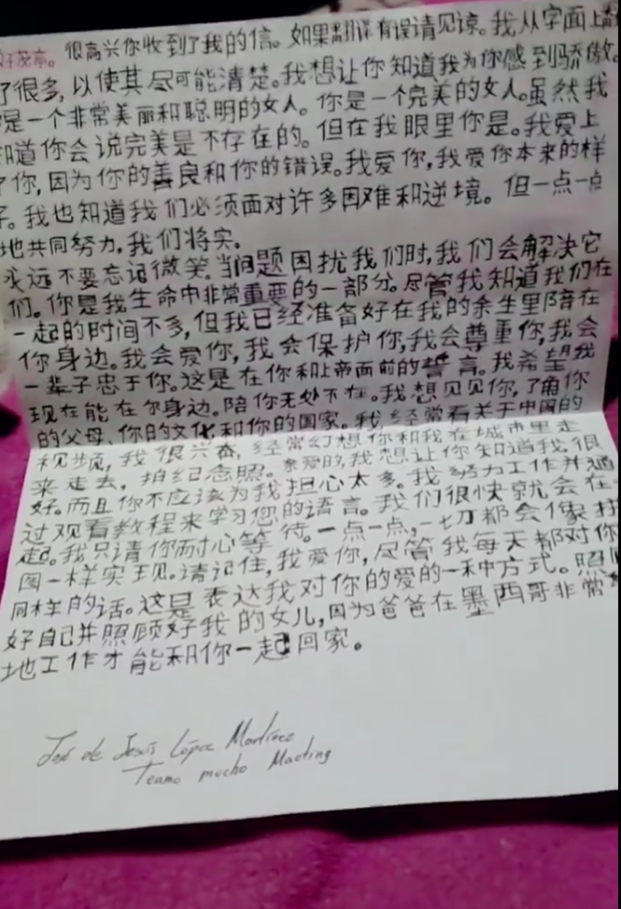 好茂亭。很高兴你收到了我的信。如果翻译有误请见谅。我从字面上
了很多,以使其尽可能清楚。我想让你知道我为你感到骄傲。
是一个非常美丽和聪明的女人。你是一个完美的女人。虽然我
知道你会说完美是不存在的。但在我眼里你是。我爱上
了你,因为你的善良和你的错误。我爱你,我爱你本来的样
子。我也知道我们必须面对许多困难和逆境。但一点一点
地共同努力,我们将实.
永远不要忘记微笑。当问题困扰我们时,我们会解决它
们。你是我生命中非常重要的一部分。尽管我知道我们在
一起的时间不多,但我已经准备好在我的余生里陪在
你身边。我会爱你,我会保护你,我会尊重你,我会
一辈子忠于你。这是在你和上帝面前的誓言。我希望我
现在能在你身边。陪你无处不在。我想见见你,了角你
的父母,你的文化和你的国家。我经常看关于中国的
视频,我很兴奋,经常幻想你和我在城市里走
来走去,拍纪念照。亲爱的,我想让你知道我很
好。而且你不应该为我担心太多。我努力工作并通
过观看教程来学习您的语言。我们很快就会在一
起。我只请你耐心等待。一点一点,一切都会像拼
图一样实现。请记住,我爱你,尽管我每天都对你
同样的话。这是表达我对你的爱的一种方式。照顾
好自己并照顾好我的女儿,因为爸爸在墨西哥非常
地工作才能和你一起回家。
José de Jesús López Martínez
Teamo mucho Maoting